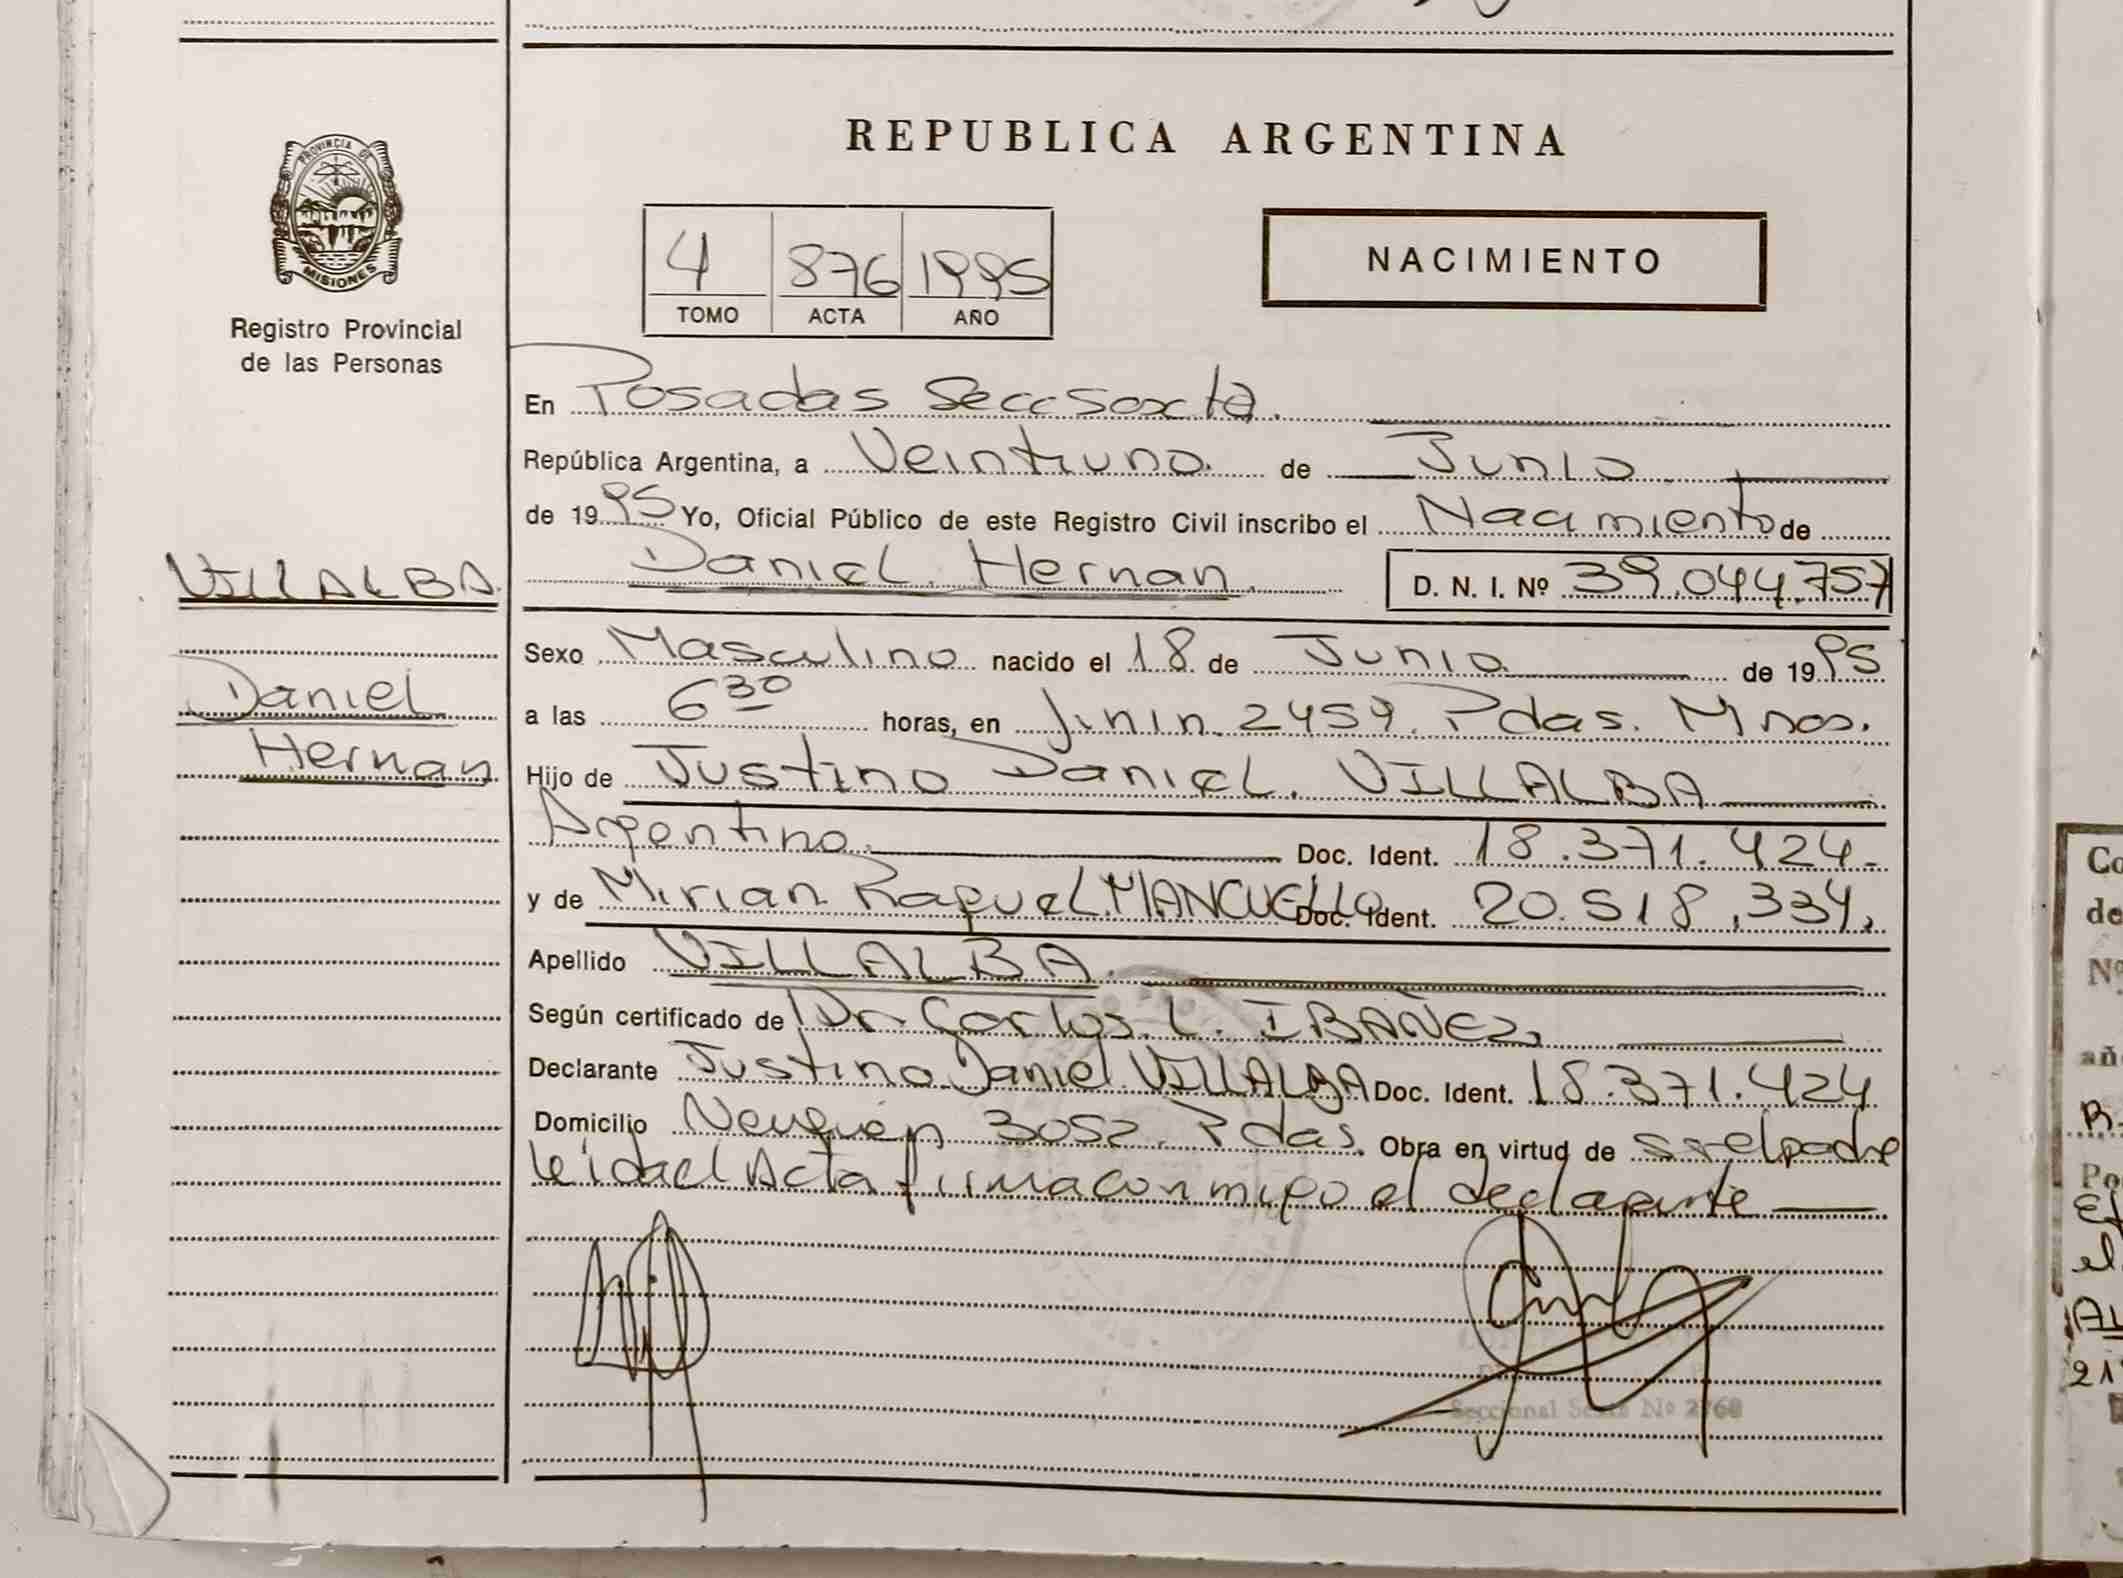 REPUBLICA ARGENTINA
PROVINCIA DE
MISIONES
Registro Provincial
de las Personas
4 876 1995
TOMO ACTA AÑO
NACIMIENTO
En Posadas Secc Sexta.
República Argentina, a Veintiuno. de Junio
de 1995 Yo, Oficial Público de este Registro Civil inscribo el Nacimiento de
VILLALBA Daniel Hernan
Daniel. Hernan. D. N. I. Nº 39.044.757
Sexo Masculino nacido el 18 de Junio de 1995
a las 6 30 horas, en Junin. 2457. Pdas. Mnes.
Hijo de Justino Daniel. VILLALBA
Argentino. Doc. Ident. 18.371.424-
y de Mirian Raquel. MANCUELLO Doc. Ident. 20.518.334,
Apellido VILLALBA.
Según certificado de Dr. Carlos. L. IBAÑEZ,
Declarante Justino Daniel VILLALBA Doc. Ident. 18.371.424
Domicilio Neuquén 3052. Pdas. Obra en virtud de ser el padre
leída el Acta firma conmigo el declarante
Seccional Sexta Nº 2760
Co
de
Nº
añ
R.
Po
el
21